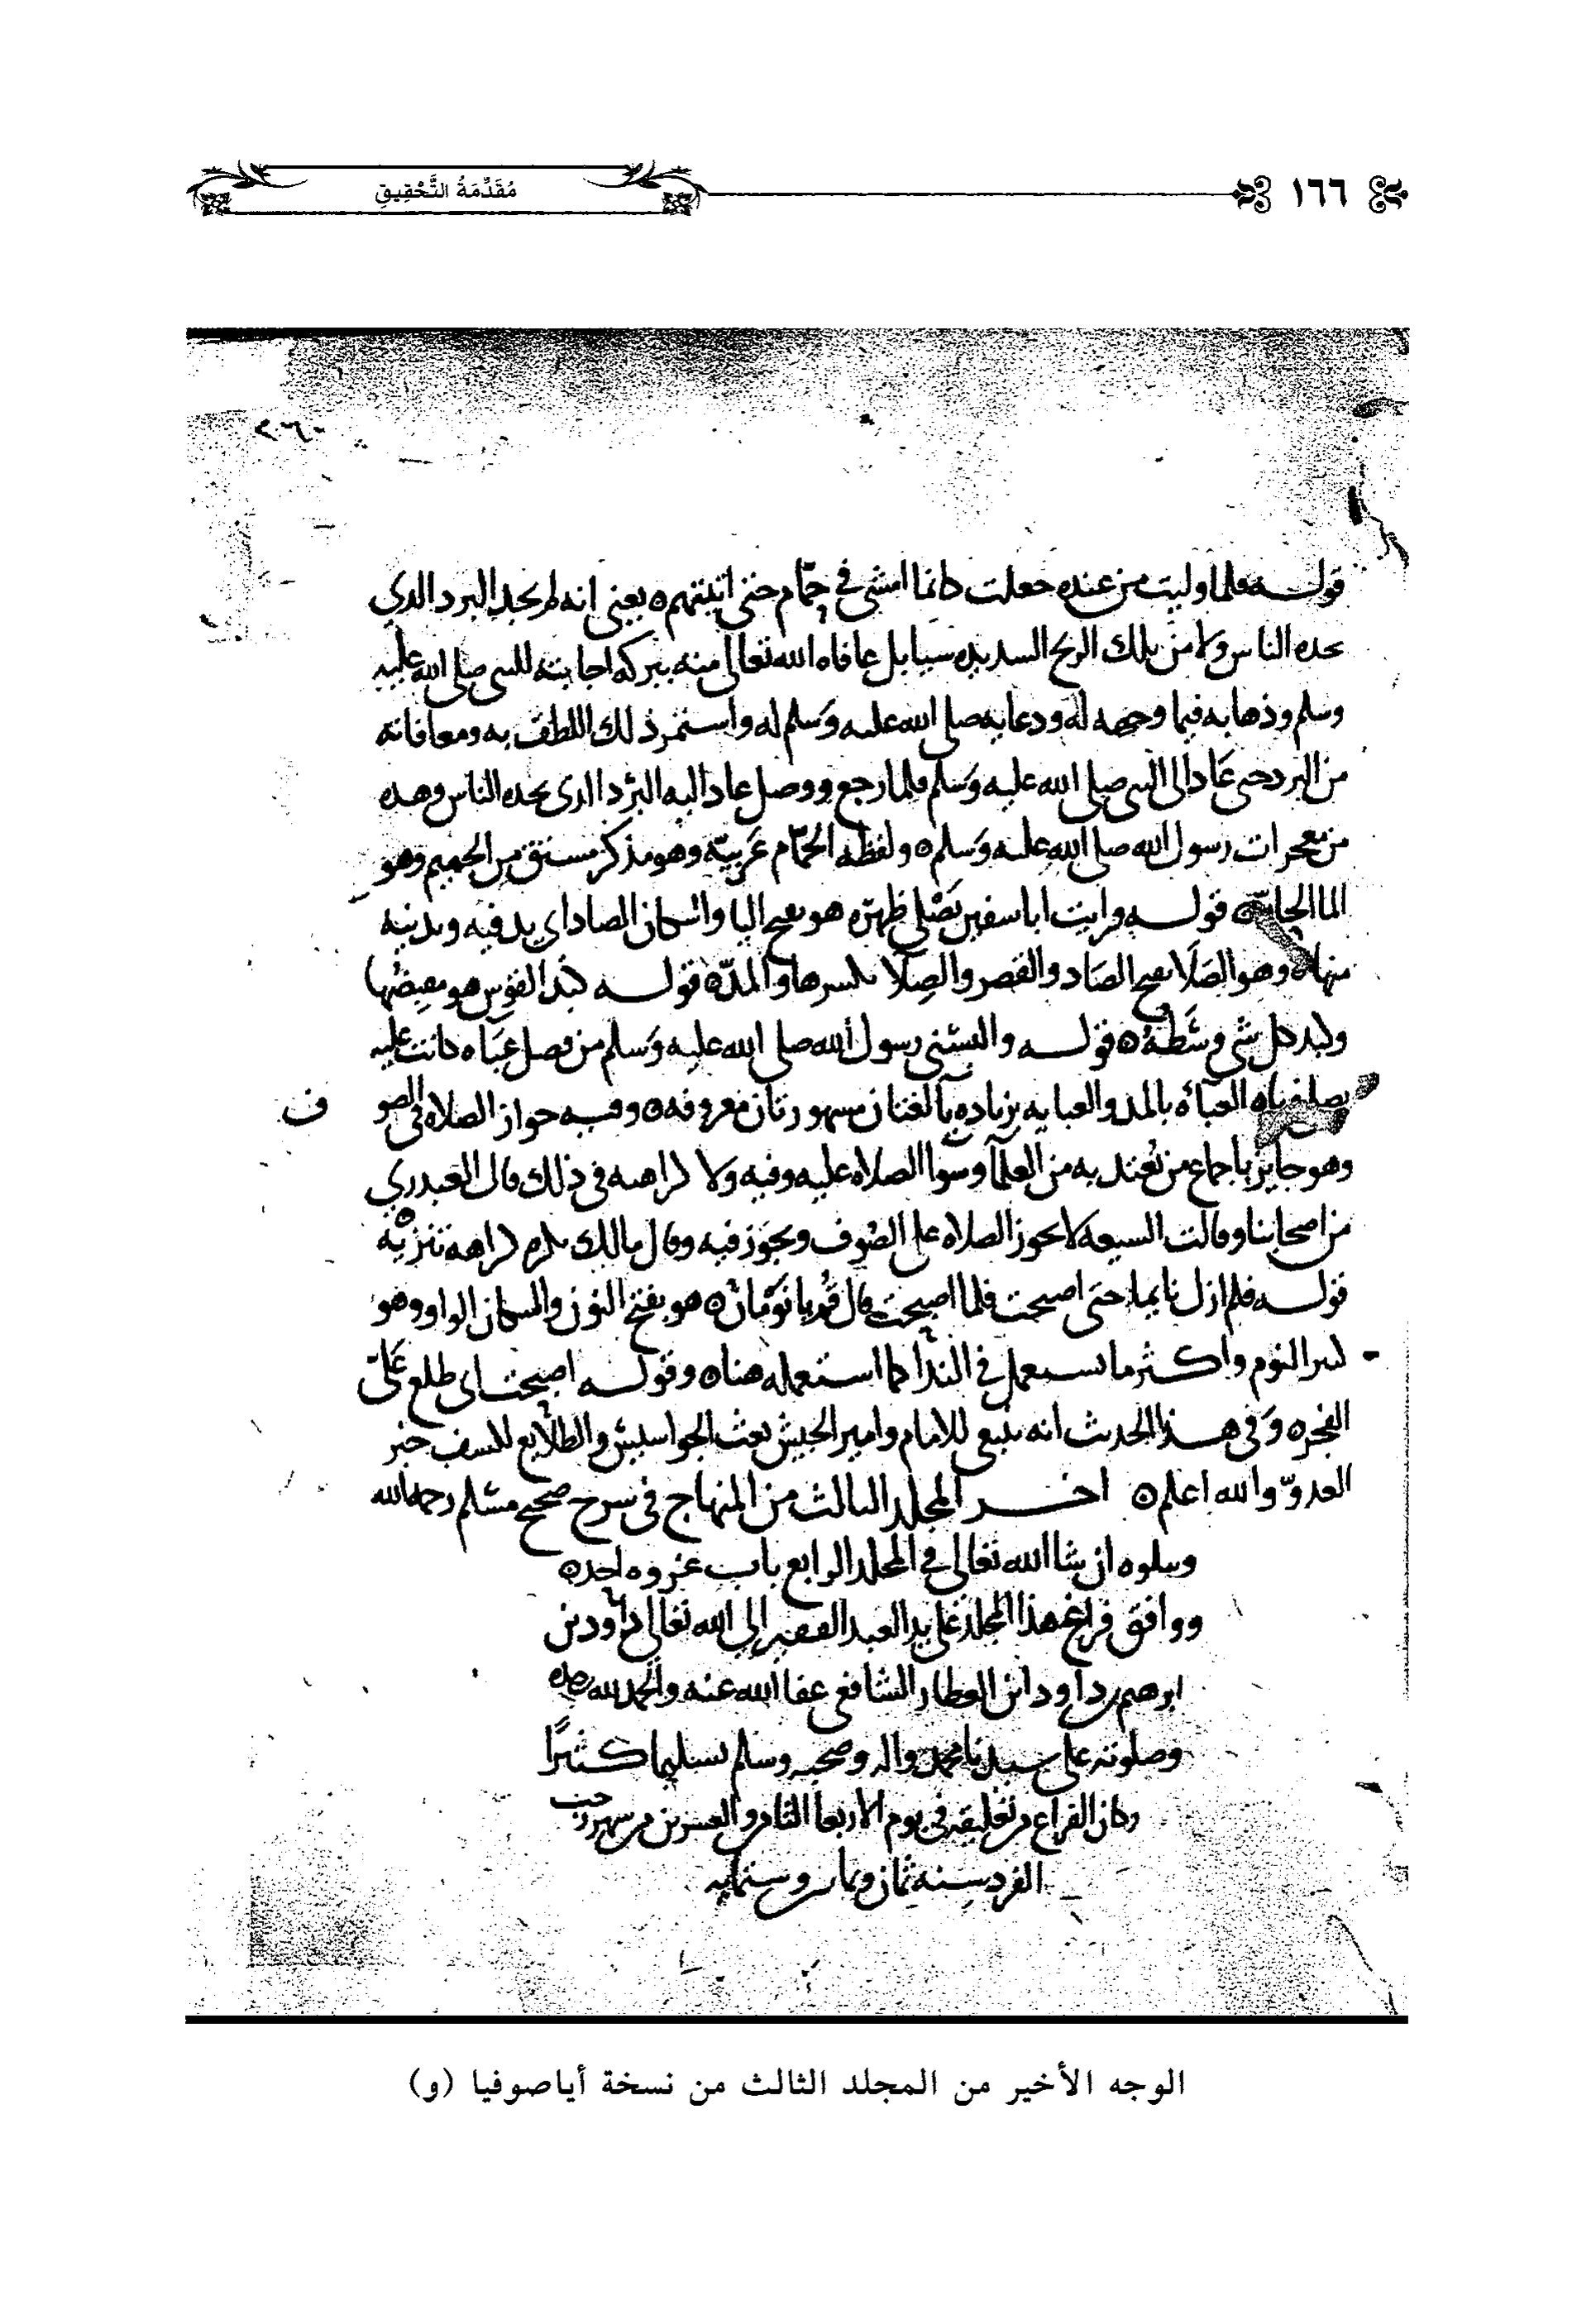 ١٦٦
مُقَدِّمَةُ التَّحْقِيقِ
قوله فلما وليت من عنده جعلت كانما امشي في حمّام حتى اتيتهم ه يعني انه لم يجد البرد الذي
يجده الناس ولا من تلك الريح الشديده شيا بل عافاه الله تعالى منه ببركه اجابته للنبي صلى الله عليه
وسلم وذهابه فيما وجهه له ودعايه صلى الله عليه وسلم له واستمر ذلك اللطف به ومعافاته
من البرد حتى عاد الى النبي صلى الله عليه وسلم فلما رجع ووصل عاد اليه البرد الذي يجده الناس وهذه
من معجزات رسول الله صلى الله عليه وسلم ه ولفظه الحمّام عربيّه وهو مذكر مشتق من الحميم وهو
الما الحار قوله ورايت ابا سفين يَصْلي ظهرَه هو بفتح اليا واسكان الصاد اي يدفيه ويدنيه
منها ه وهو الصَلَا بفتح الصاد والقصر والصِلا بكسرها والمدّ ه قوله كبد القوس هو مقبضها
وكبد كل شي وسَطهُ ه قوله والبسني رسول الله صلى الله عليه وسلم من فضل عَبَاه كانت عليه
يصلي فيها ه العباه بالمد والعبايه بزياده يا لغتان مشهورتان معروفه ه وفيه جواز الصلاه في الصو ف
وهو جايز باجماع من يُعتد به من العلما وسوا الصلاه عليه وفيه ولا كراهه في ذلك قال العبدري
من اصحابنا وقالت الشيعه لا تجوز الصلاه على الصُوف وتجوز فيه وقال مالك يكره كراهه تنزيه ه
قوله فلم ازل نايما حتى اصبحت فلما اصبحت قال قُم يا نَوْمانُ ه هو بفتح النون واسكان الواو وهو
كثير النوم واكثر ما يستعمل في الندا كما استعمله هنا ه وقوله اصبحت اي طلع عَلَيّ
الفجر ه وَفي هذا الحديث انه ينبغي للامام وامير الجيش بعث الجواسيس والطلايع لكشف خبر
العدوّ والله اعلم ه اخر المجلد الثالث من المنهاج في شرح صحيح مسلم رحمه الله
ويتلوه ان شا الله تعالى في المجلد الرابع باب غزوه احد ه
ووافق فراغ هذا المجلد على يد العبد الفقير الى الله تعالى داود بن
ابرهيم بن داود ابن العطار الشافعي عفا الله عنه والحمد لله وحده
وصلوته على سيدنا محمد واله وصحبه وسلم تسليما كثيرًا
وكان الفراغ من تعليقه في يوم الاربعا الثامن والعشرين من شهر رجب
الفرد سنه ثمان وثمانين وستمايه
الوجه الأخير من المجلد الثالث من نسخة أياصوفيا (و)